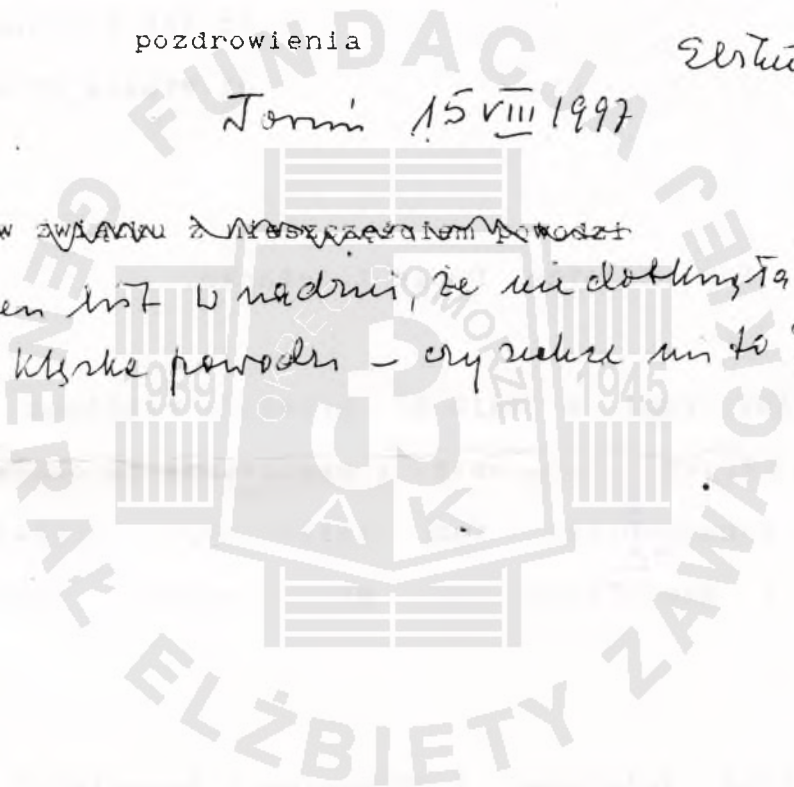 pozdrowienia
Toruń 15 VIII 1997
w związku z nieszczęściem powodzi
list w nadziei, że nie dotknęła
klęska powodzi – czy
to
FUNDACJA GENERAŁ ELŻBIETY ZAWACKIEJ
OKRĘG POMORZE
1939 1945
AK